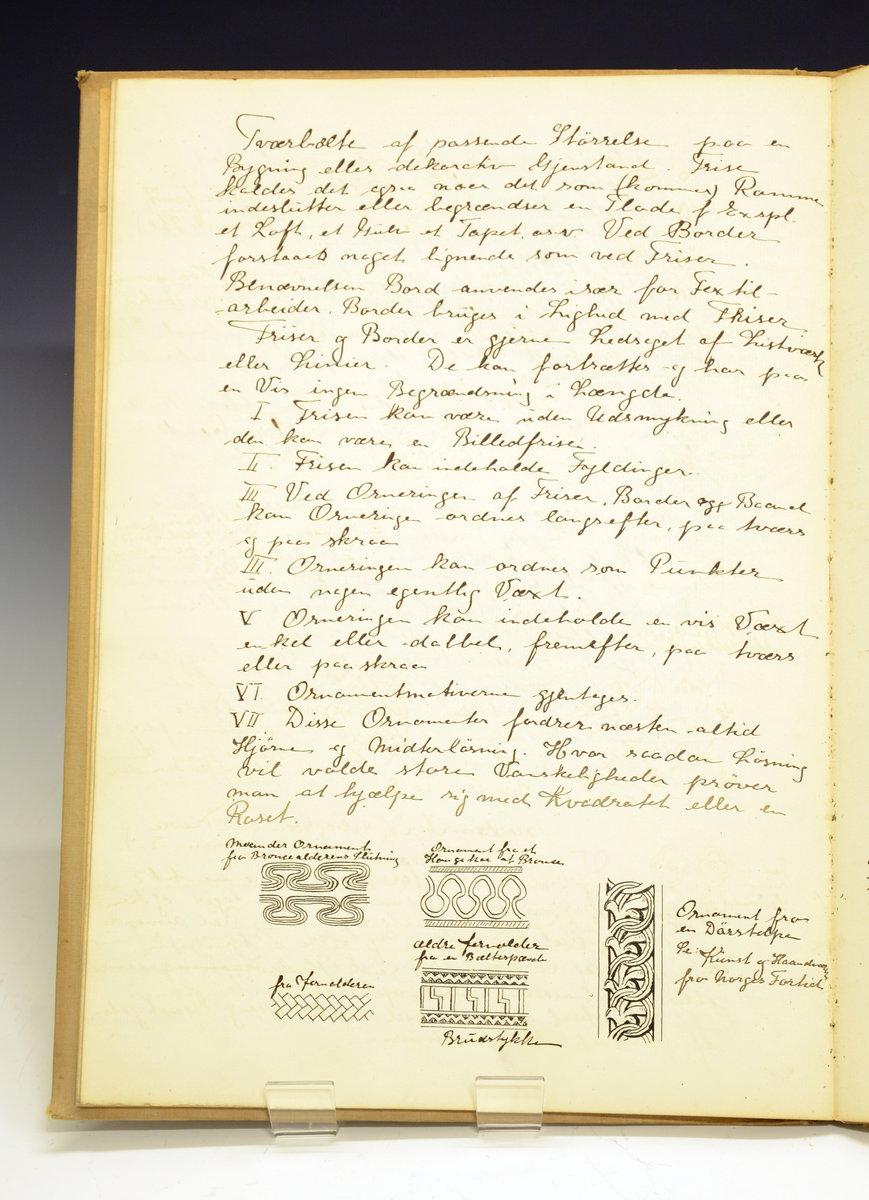 Tværbælte af passende Störrelse paa en
Bygning eller dekorativ Gjenstand. Frise
kaldes det ogsaa naar det som (kommer) Ramme
indeslutter eller begrændser en Flade f Exspl.
et Loft, et Gulv et Tapet. o.s.v. Ved Border
forstaaes noget lignende som ved Friser.
Benævnelsen Bord anvendes især for Textil-
arbeider. Border bruges i Lighed med Friser
Friser og Border er gjerne ledsaget af Listværk
eller Linier. De kan fortsættes og har paa
en Vis ingen Begrændsning i Længde.
I Frisen kan være uden Udsmykning eller
den kan være en Billedfrise.
II. Frisen kan indeholde Fyldinger.
III Ved Orneringen af Friser, Border og Baand
kan Orneringen ordnes langsefter, paa tværs
og paa skraa
IIII. Orneringen kan ordnes som Punkter
uden nogen egentlig Væxt.
V Orneringen kan indeholde en vis Væxt
enkel eller dobbel, fremefter, paa tværs
eller paa skraa
VI. Ornamentmotiverne gjentages.
VII Disse Ornamenter fordrer næsten altid
Hjörne og Midterlösning. Hvor saadan Lösning
vil volde store Vanskeligheder pröver
man at hjælpe sig med Kvadratet eller en
Roset.
Meander Ornament
fra Broncealderens Slutning
Ornament fra et
Hængekar af Bronce
ældre Jernalder
fra en Bæltespænde
fra Jernalderen
Brudstykke
Ornament fra
en Dörstolpe
Se: Kunst og Haandværk
fra Norges Fortid